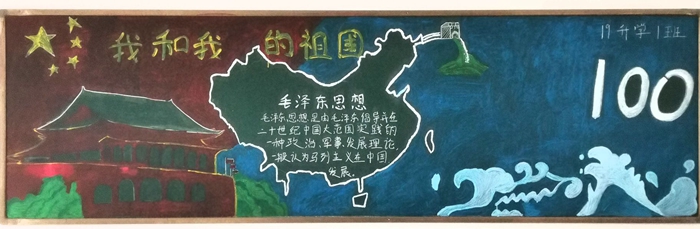 我和我的祖国
19升学1班
100
毛泽东思想
毛泽东思想是由毛泽东倡导并在
二十世纪中国大范围实践的
一种政治、军事、发展理论,
一般认为马列主义在中国
发展。